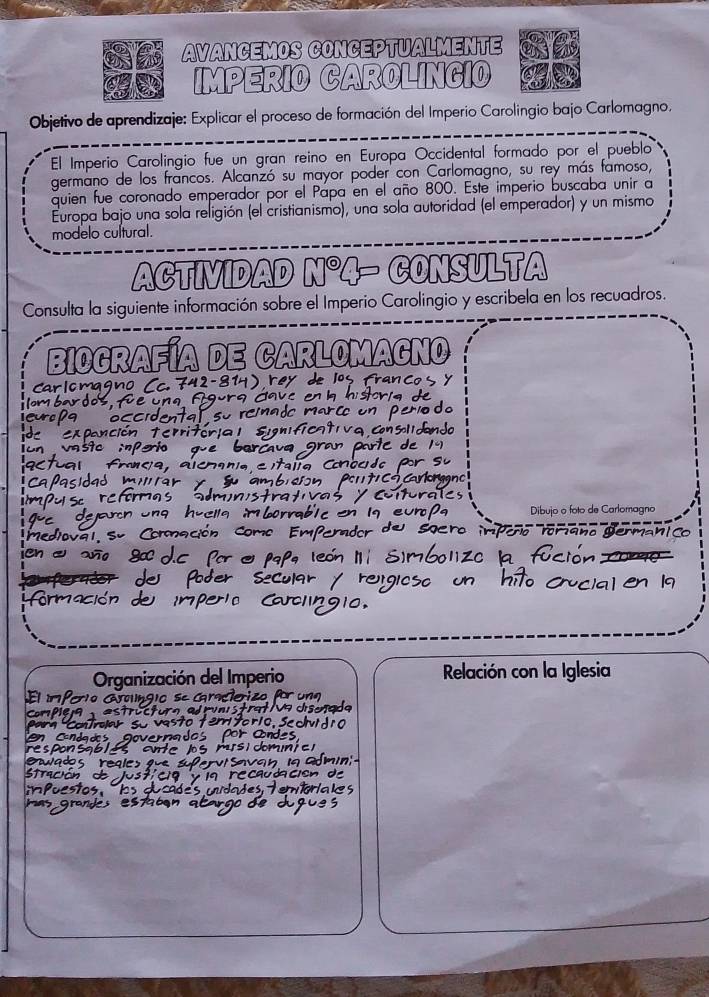 AVANCEMOS CONCEPTUALMENTE
IMPERIO CAROLINGIO
Objetivo de aprendizaje: Explicar el proceso de formación del Imperio Carolingio bajo Carlomagno.
El Imperio Carolingio fue un gran reino en Europa Occidental formado por el pueblo
germano de los francos. Alcanzó su mayor poder con Carlomagno, su rey más famoso,
quien fue coronado emperador por el Papa en el año 800. Este imperio buscaba unir a
Europa bajo una sola religión (el cristianismo), una sola autoridad (el emperador) y un mismo
modelo cultural.
ACTIVIDAD N°4- CONSULTA
Consulta la siguiente información sobre el Imperio Carolingio y escribela en los recuadros.
BIOGRAFÍA DE CARLOMAGNO
carlomagno (c. 742-814), rey de los francos y
lombardos, fue una figura clave en la historia de
europa occidental, su reinado marco un periodo
de expanción territorial significativa, consolidando
un vasto inperio que barcava gran parte de la
actual francia, alemania, e italia conocido por su
capasidad militar y su ambicion política carlomagno
impuso reformas administrativas y culturales
que dejaron una huella imborrable en la europa
medioval, su Coronación como Emperador del sacro imperio romano germanico
en el año 800 d.c Por el papa león III simbolizo la fución
del Poder secular y religioso un hito crucial en la
formación del imperio carolingio.
Dibujo o foto de Carlomagno
Organización del Imperio
El imperio carolingio se caracterizo por una
compleja estructura administrativa diseñada
para controlar su vasto territorio. Se dividio
en condados governados por condes,
responsables ante los missi dominici
enviados reales que supervisavan la admini-
stración de Justicia y la recaudacion de
inpuestos, los ducados unidades, territoriales
mas grandes estaban a cargo de duques
Relación con la Iglesia